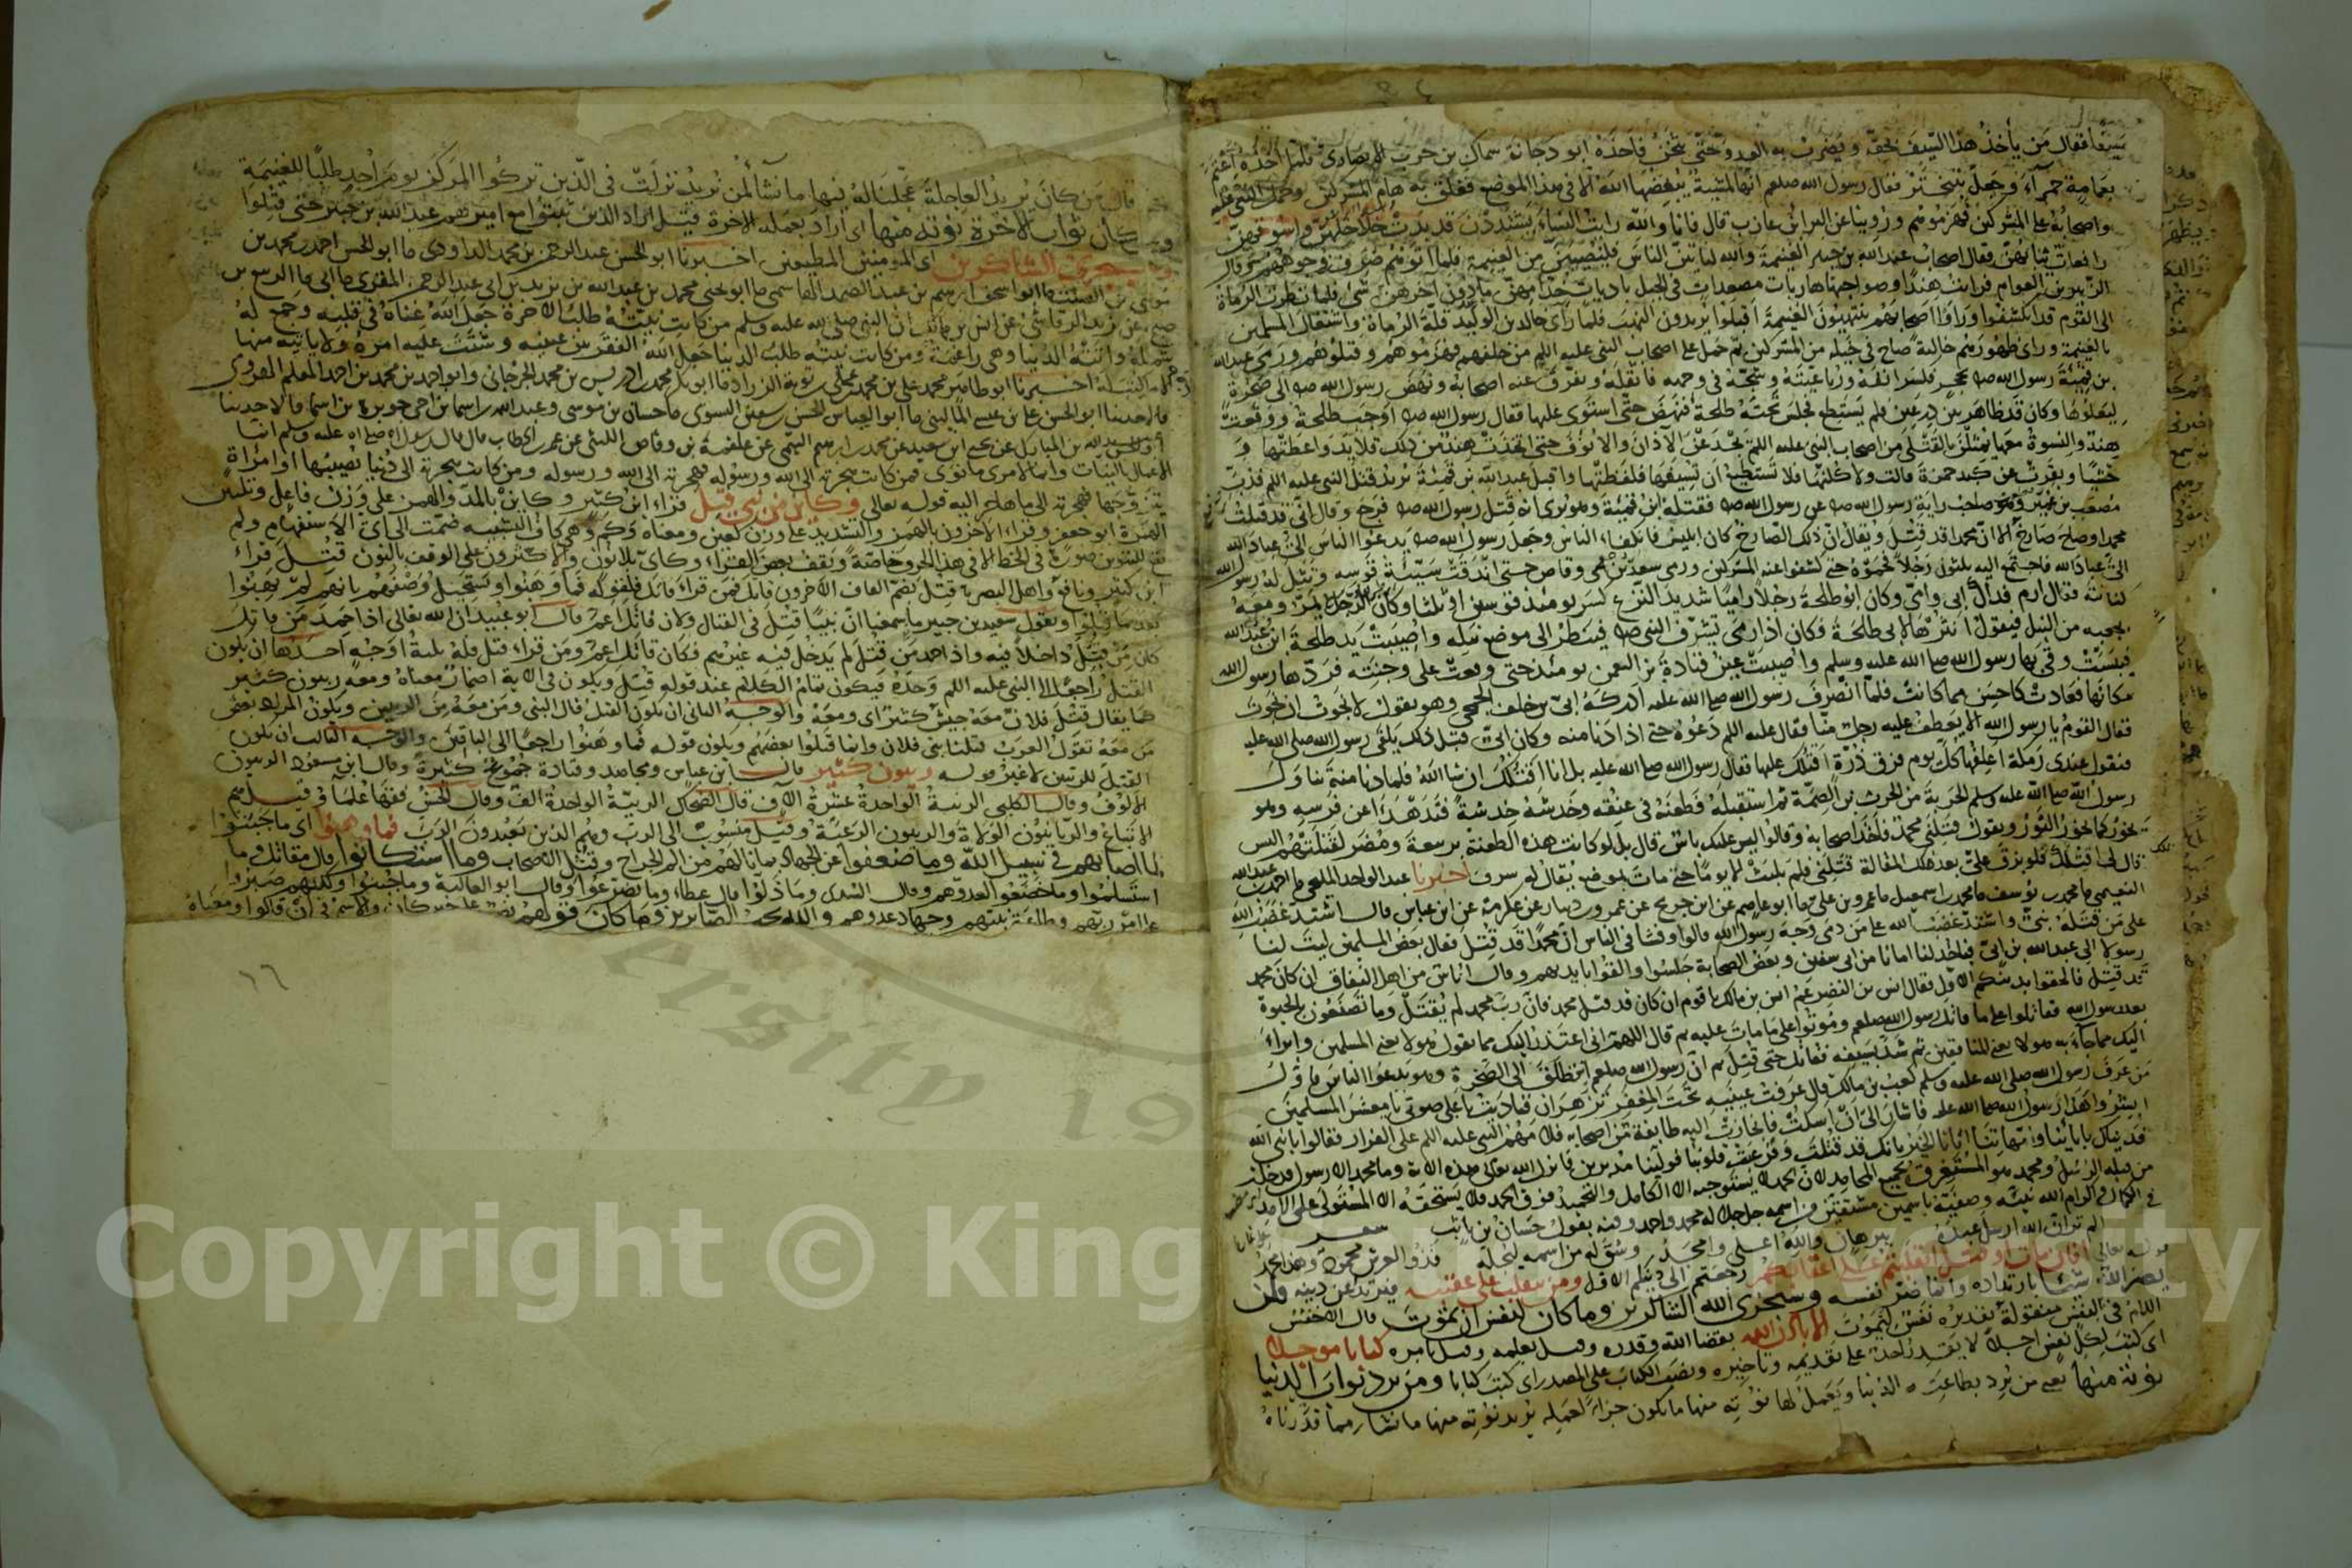 سيفا فقال من يأخذ هذا السيف بحقه ويضرب به العدو حتى يثخن فأخذه ابو دجانة سماك بن حرب الانصاري فلما اخذه اعتم
بعمامة حمراء وجعل يتبختر فقال رسول الله صلعم انها لمشية يبغضها الله الا في هذا الموضع ففلق به هام المشركين وحمل النبي عليه
واصحابه على المشركين فهزموهم وروينا عن البراء بن عازب قال فانا والله رايت النساء يشتددن قد بدت خلاخلهن واسوقهن
رافعات ثيابهن فقال اصحاب عبد الله بن جبير الغنيمة والله لناتين الناس فلنصيبن من الغنيمة فلما اتوهم صرفت وجوههم وقال
الزبير بن العوام فرايت هندا وصواحبها هاربات مصعدات في الجبل باديات خدامهن ما دون اخذهن شئ فلما نظرت الرماة
الى القوم قد انكشفوا وراوا اصحابهم ينتهبون الغنيمة اقبلوا يريدون النهب فلما راى خالد بن الوليد قلة الرماة واشتغال المسلمين
بالغنيمة وراى ظهورهم خالية صاح في خيله من المشركين ثم حمل على اصحاب النبي عليه اللم من خلفهم فهزموهم وقتلوهم ورمى عبد الله
بن قمئة رسول الله صلعم بحجر فكسر انفه ورباعيته وشجه في وجهه فاثقله وتفرق عنه اصحابه ونهض رسول الله صلعم الى صخرة
ليعلوها وكان قد ظاهر بين درعين فلم يستطع فجلس تحته طلحة فنهض حتى استوى عليها فقال رسول الله صلعم اوجب طلحة ووقعت
هند والنسوة معها يمثلن بالقتلى من اصحاب النبي عليه اللم يجدعن الآذان والانوف حتى اتخذت هند من ذلك قلائد واعطتها
وحشيا وبقرت عن كبد حمزة فلاكتها فلم تستطع ان تسيغها فلفظتها واقبل عبد الله بن قمئة يريد قتل النبي عليه اللم فذب
مصعب بن عمير وهو صاحب راية رسول الله صلعم عن رسول الله صلعم فقتله ابن قمئة وهو يرى انه قتل رسول الله صلعم فرجع وقال اني قد قتلت
محمدا وصاح صارخ الا ان محمدا قد قتل ويقال ان ذلك الصارخ كان ابليس فانكفا الناس وجعل رسول الله صلعم يدعوا الناس الي عباد الله
الي عباد الله فاجتمع اليه ثلثون رجلا فحموه حتى كشفوا عنه المشركين ورمى سعد بن ابي وقاص حتى اندقت سية قوسه ونثل له رسول الله
كنانته فقال ارم فداك ابي وامي وكان ابو طلحة رجلا راميا شديد النزع كسر يومئذ قوسين او ثلثا وكان الرجل يمر ومعه
بجعبه من النبل فيقول انثرها لابي طلحة وكان اذا رمى يشرف النبي صلعم فينظر الى موضع نبله واصيبت يد طلحة ابن عبيد الله
فيبست وقى بها رسول الله صلى الله عليه وسلم واصيبت عين قتادة بن النعمن يومئذ حتى وقعت على وجنته فردها رسول الله
مكانها فعادت كاحسن مما كانت فلما انصرف رسول الله صلى الله عليه ادركه ابي بن خلف الجمحي وهو يقول لا نجوت ان نجوت
فقال القوم يا رسول الله الا يعطف عليه رجل منا فقال عليه اللم دعوه حتى اذا دنا منه وكان ابي قبل ذلك يلقى رسول الله صلى الله عليه
فيقول عندي رمكة اعلفها كل يوم فرق ذرة اقتلك عليها فقال رسول الله صلى الله عليه بل انا اقتلك ان شا الله فلما دنا منه تناول
رسول الله صلى الله عليه وسلم الحربة من الحرث بن الصمة ثم استقبله فطعنه في عنقه وخدشه خدشة فتدهدا عن فرسه وهو
يخور كما يخور الثور ويقول قتلني محمد فاخذه اصحابه وقالوا ليس عليك باس قال بل لو كانت هذه الطعنة بربيعة ومضر لقتلتهم اليس
قال لي اقتلك فلو بزق علي بعد تلك المقالة قتلني فلم يلبث الا يوما حتى مات بموضع يقال له سرف اخبرنا عبد الواحد المليحي انا احمد بن عبد الله
النعيمي انا محمد بن يوسف نا محمد بن اسمعيل نا عمرو بن علي نا ابو عاصم عن ابن جريج عن عمرو بن دينار عن عكرمة عن ابن عباس قال اشتد غضب الله
على من قتله نبي واشتد غضب الله على من دمى وجه رسول الله قالوا وفشا في الناس ان محمدا قد قتل فقال بعض المسلمين ليت لنا
رسولا الى عبد الله بن ابي فياخذ لنا امانا من ابي سفين وبعض الصحابة جلسوا والقوا بايديهم وقال اناس من اهل النفاق ان كان محمد
قد قتل فالحقوا بدينكم الاول فقال انس بن النضر عم انس بن مالك يا قوم ان كان قد قتل محمد فان رب محمد لم يقتل وما تصنعون بالحيوة
بعد رسول الله فقاتلوا على ما قاتل رسول الله صلعم وموتوا على ما مات عليه ثم قال اللهم اني اعتذر اليك مما يقول هولا يعني المسلمين وابرا
اليك مما جاء به هولا يعني المنافقين ثم شد بسيفه فقاتل حتى قتل ثم ان رسول الله صلعم انطلق الى الصخرة وهو يدعوا الناس فاول
من عرف رسول الله صلى الله عليه وسلم كعب بن مالك قال عرفت عينيه تحت المغفر تزهران فناديت باعلى صوتي يا معشر المسلمين
ابشروا هذا رسول الله صلى الله عليه فاشار الي ان اسكت فانحازت اليه طايفة من اصحابه فلامهم النبي عليه اللم على الفرار فقالوا يا نبي الله
فديناك بابائنا وامهاتنا اتانا الخبر بانك قد قتلت فرعبت قلوبنا فولينا مدبرين فانزل الله تعالى هذه الاية وما محمد الا رسول قد خلت
من قبله الرسل ومحمد هو المستغرق بجميع المحامد لان الحمد لا يستوجبه الا الكامل والتحميد فوق الحمد فلا يستحقه الا المستولي على الامد
في الكمال فاكرم الله نبيه وصفيه باسمين مشتقين من اسمه جل جلاله محمد واحمد وفيه يقول حسان بن ثابت شعر
الم تر ان الله ارسل عبده ببرهان والله اعلى وامجد وشق له من اسمه ليجله فذو العرش محمود وهذا محمد
قوله تعالى افان مات او قتل انقلبتم على اعقابكم رجعتم الى دينكم الاول ومن ينقلب على عقبيه فيرتد عن دينه فلن
يضر الله شيئا بارتداده وانما ضر نفسه وسيجزي الله الشاكرين وما كان لنفس ان تموت قال الاخفش
اللام في لنفس منقولة تقديره نفس لتموت الا باذن الله بقضا الله وقدره وقيل بعلمه وقيل بامره كتابا موجلا
اي كتب لكل نفس اجلا لا يقدر احد على تقديمه وتاخيره ونصب الكتاب على المصدر اي كتب كتابا ومن يرد ثواب الدنيا
نؤته منها يعني من يرد بطاعته الدنيا ويعمل لها نؤته منها ما يكون جزاء لعمله يريد نؤته منها ما نشا مما قدرناه
قال من كان يريد العاجلة عجلنا له فيها ما نشآء لمن نريد نزلت في الذين تركوا المركز يوم احد طلبا للغنيمة
ومن كان ثواب الاخرة نؤته منها اي اراد بعمله الاخرة قيل اراد الذين ثبتوا مع اميرهم عبد الله بن جبير حتى قتلوا
وسيجزي الشاكرين اي المومنين المطيعين اخبرنا ابو الحسن عبد الرحمن بن محمد الداودي نا ابو الحسن احمد بن محمد بن
موسى بن الصلت نا ابو اسحق ابرهيم بن عبد الصمد الهاشمي نا ابو يحيى محمد بن عبد الله بن يزيد بن ابي عبد الرحمن المقري نا ابي نا الربيع بن
صبيح عن يزيد الرقاشي عن انس بن مالك ان النبي صلى الله عليه وسلم من كانت نيته طلب الاخرة جعل الله غناه في قلبه وجمع له
شمله واتته الدنيا وهي راغمة ومن كانت نيته طلب الدنيا جعل الله الفقر بين عينيه وشتت عليه امره ولا ياتيه منها
الا ما كتب له اخبرنا ابو طاهر محمد بن علي بن محمد بن علي بن بوية الزراد انا ابو بكر محمد بن ادريس بن محمد الجرجاني وابو احمد بن محمد بن احمد المعلم الهروي
قالا حدثنا ابو الحسن علي بن عيسى الماليني نا ابو العباس الحسن بن سفين النسوي نا حسان بن موسى وعبد الله بن اسما بن اخي جويرية بن اسما قالا حدثنا
عبد الله بن المبارك عن يحيى ابن سعيد عن محمد بن ابرهيم التيمي عن علقمة بن وقاص الليثي عن عمر بن الخطاب قال قال رسول الله صلى الله عليه وسلم انما
الاعمال بالنيات وانما لامرئ ما نوى فمن كانت هجرته الى الله ورسوله فهجرته الى الله ورسوله ومن كانت هجرته الى دنيا يصيبها او امراة
يتزوجها فهجرته الى ما هاجر اليه قوله تعالى وكاين من نبي قتل قراء ابن كثير وكاين بالمد والهمز على وزن فاعل وتليين
الهمزة ابو جعفر وقراء الاخرون بالهمز والتشديد على وزن كعين ومعناه وكم وهي كاف التشبيه ضمت الى اي الاستفهام ولم
يقع للتنوين صورة في الخط الا في هذا الحرف خاصة ويقف بعض القراء وكاي بلا نون والاكثرون على الوقف بالنون قتل قراء
ابن كثير ونافع واهل البصرة قتل بضم القاف الاخرون قاتل فمن قراء قاتل فلقوله فما وهنوا ويستحيل وصفهم بانهم لم يهنوا
بعد ما قتلوا ويقول سعيد بن جبير ما سمعنا ان نبيا قتل في القتال ولان قاتل اعم قال ابو عبيد ان الله تعالى اذا حمد من قاتل
كان من قتل داخلا فيه واذا حمد من قتل لم يدخل فيه غيرهم فكان قاتل اعم ومن قراء قتل فله ثلثة اوجه احدها ان يكون
القتل راجعا الى النبي عليه اللم وحده فيكون تمام الكلام عند قوله قتل ويكون في الاية اضمار معناه ومعه ربيون كثير
كما يقال قتل فلان معه جيش كثير اى ومعه والوجه الثاني ان يكون القتل نال النبي ومن معه من الربيين ويكون المراد بعض
من معه تقول العرب قتلنا بني فلان وانما قتلوا بعضهم ويكون قوله فما وهنوا راجعا الى الباقين والوجه الثالث ان يكون
القتل للربيين لا غير قوله ربيون كثير قال ابن عباس ومجاهد وقتادة جموع كثيرة وقال ابن مسعود الربيون
الالوف وقال الكلبي الربية الواحدة عشرة الاف قال الضحاك الربية الواحدة الف وقال الحسن فقها علما وقيل هم
الاتباع والربانيون الولاة والربيون الرعية وقيل منسوب الى الرب وهم الذين يعبدون الرب فما وهنوا اى ما جبنوا
لما اصابهم في سبيل الله وما ضعفوا عن الجهاد بما نالهم من الم الجراح وقتل الاصحاب وما استكانوا قال مقاتل وما
استسلموا وما خضعوا لعدوهم وقال السدي وما ذلوا قال عطا وما تضرعوا وقال ابو العالية وما جبنوا ولكنهم صبروا
على امر ربهم وطاعة نبيهم وجهاد عدوهم والله يحب الصابرين وما كان قولهم نصب على خبر كان والاسم في ان قالوا ومعناه
١٦
Copyright © King University
ersity 195